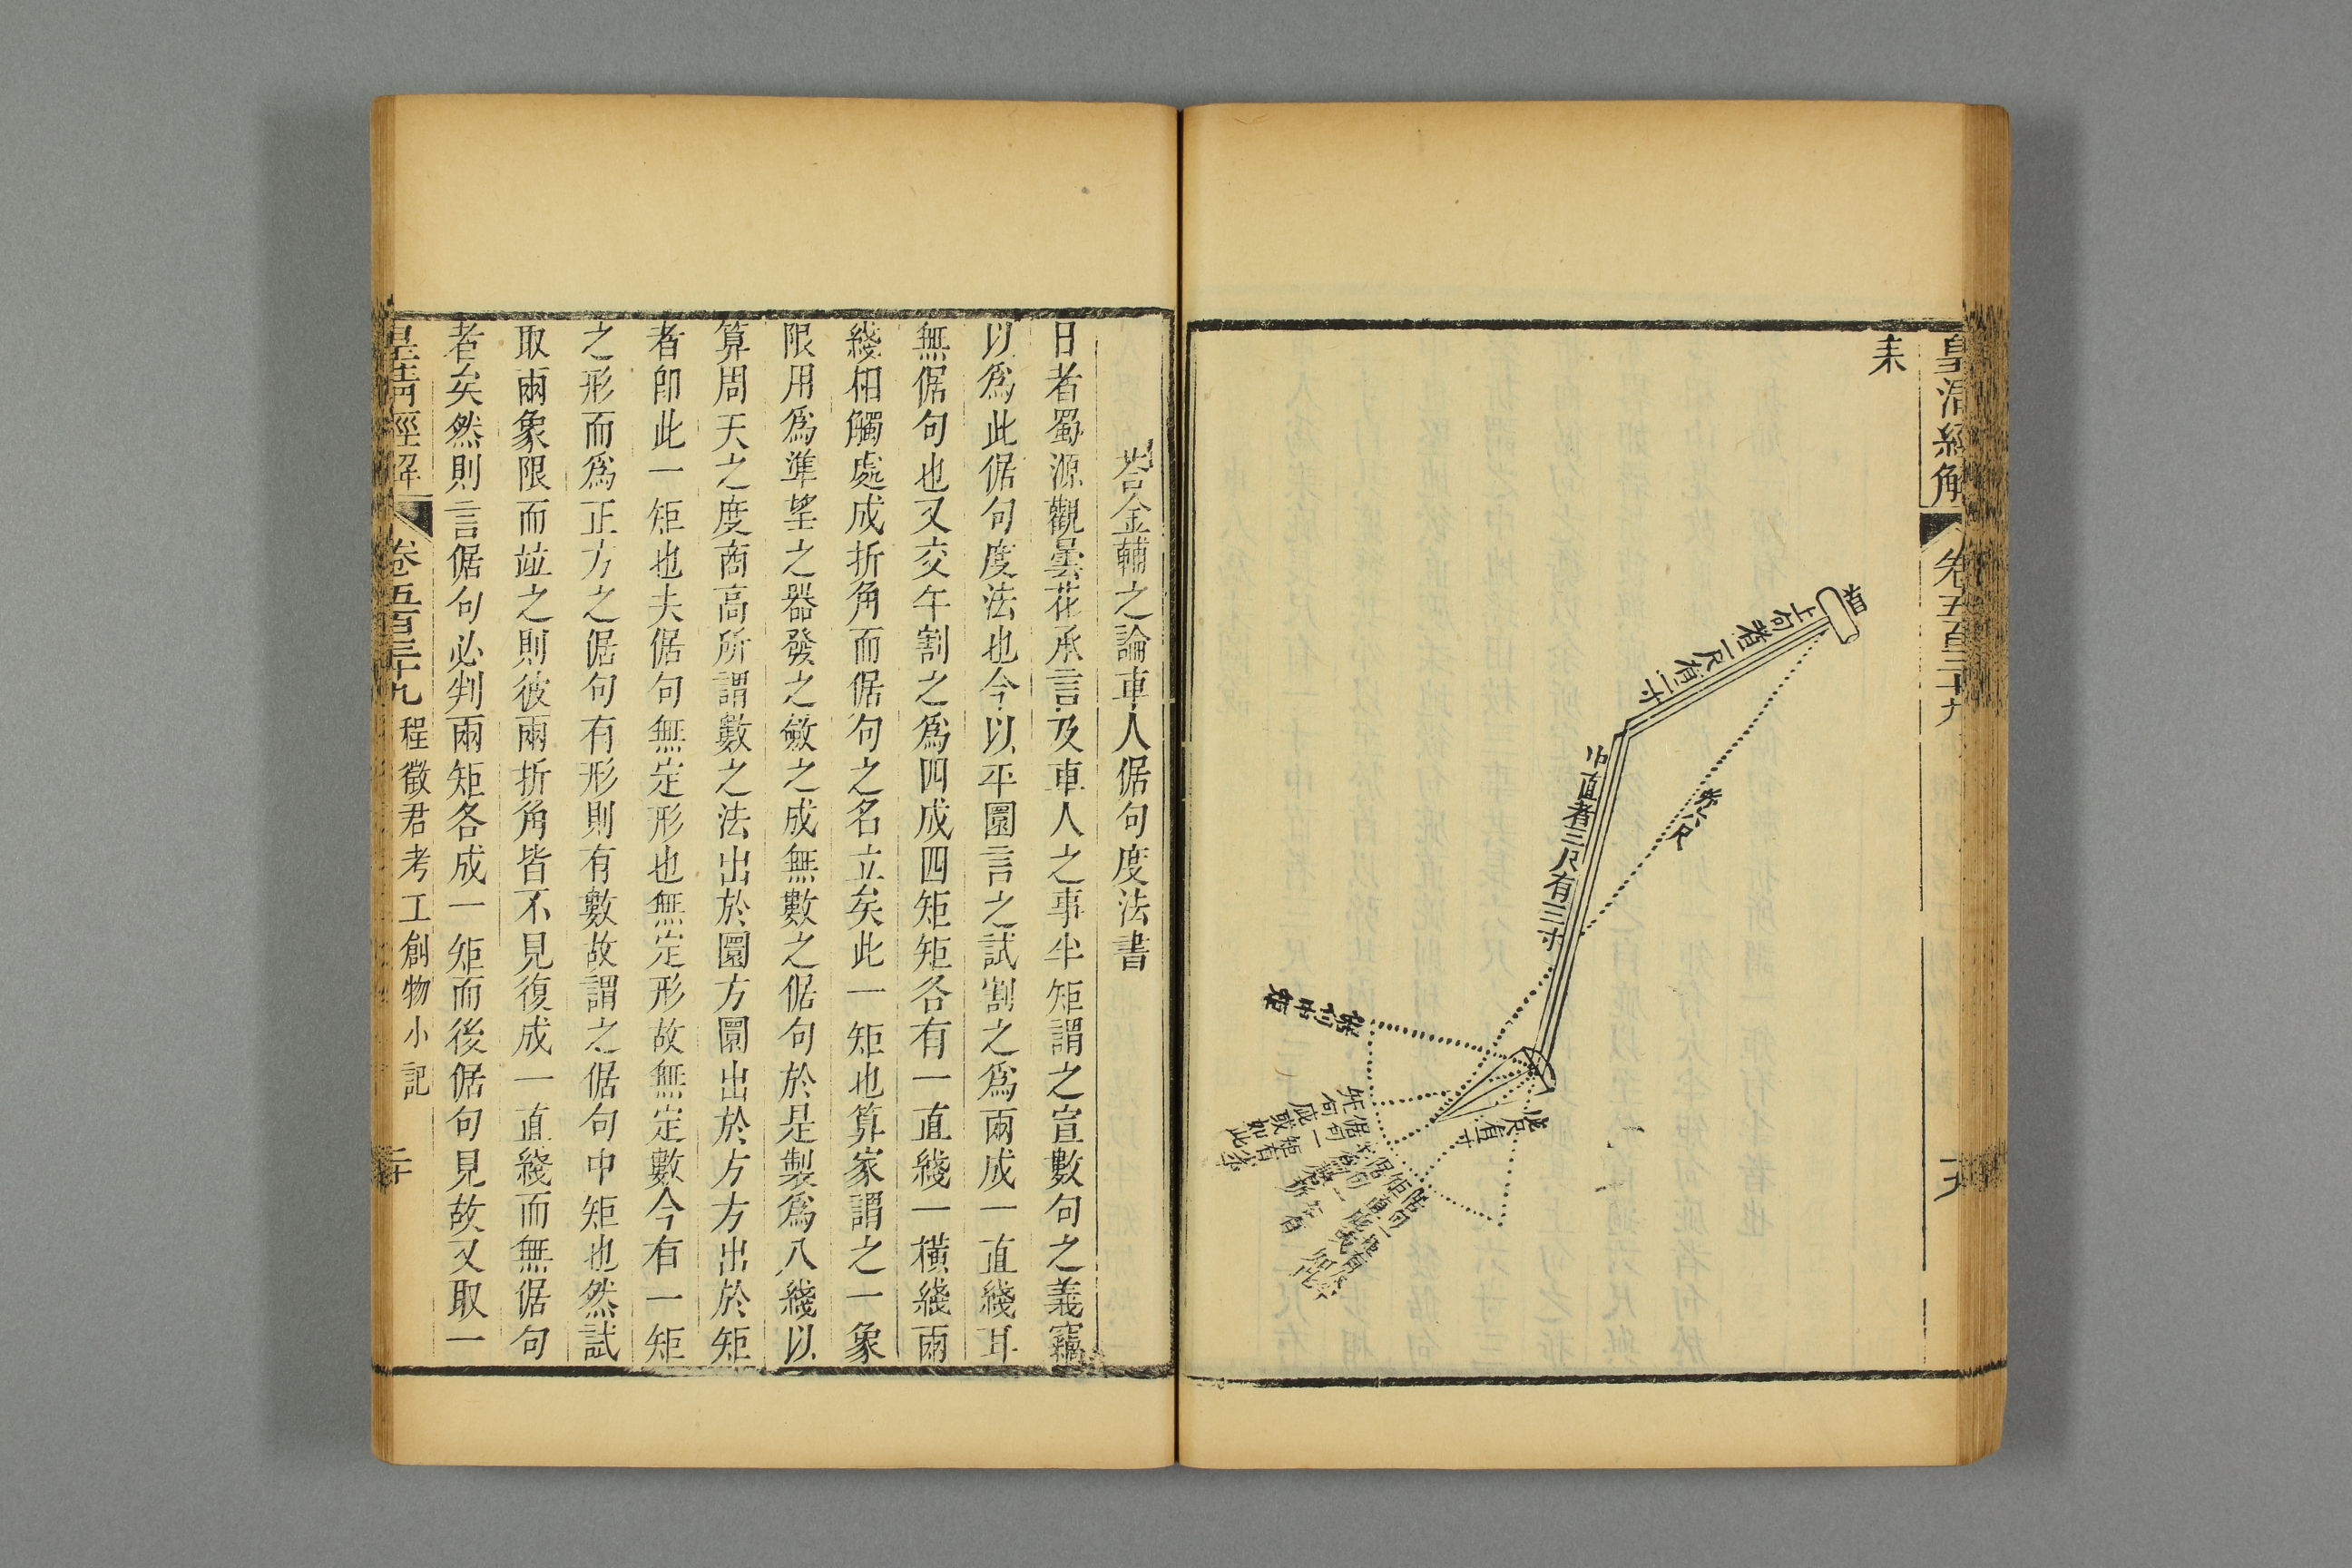 皇清經解
卷五百三十九
十九
耒
首
上句者二尺有二寸
中直者三尺有三寸
步六尺
庛尺有一寸
荅金輔之論車人倨句度法書
日者蜀源觀曇花承言及車人之事半矩謂之宣數句之義竊
以爲此倨句度法也今以平圜言之試割之爲兩成一直綫耳
無倨句也又交午割之爲四成四矩矩各有一直綫一橫綫兩
綫相觸處成折角而倨句之名立矣此一矩也算家謂之一象
限用爲準望之器發之斂之成無數之倨句於是製爲八綫以
算周天之度商高所謂數之法出於圜方圜出於方方出於矩
者卽此一矩也夫倨句無定形也無定形故無定數今有一矩
之形而爲正方之倨句有形則有數故謂之倨句中矩也然試
取兩象限而竝之則彼兩折角皆不見復成一直綫而無倨句
者矣然則言倨句必判兩矩各成一矩而後倨句見故又取一
皇清經解
卷五百三十九
程徵君考工創物小記
二十